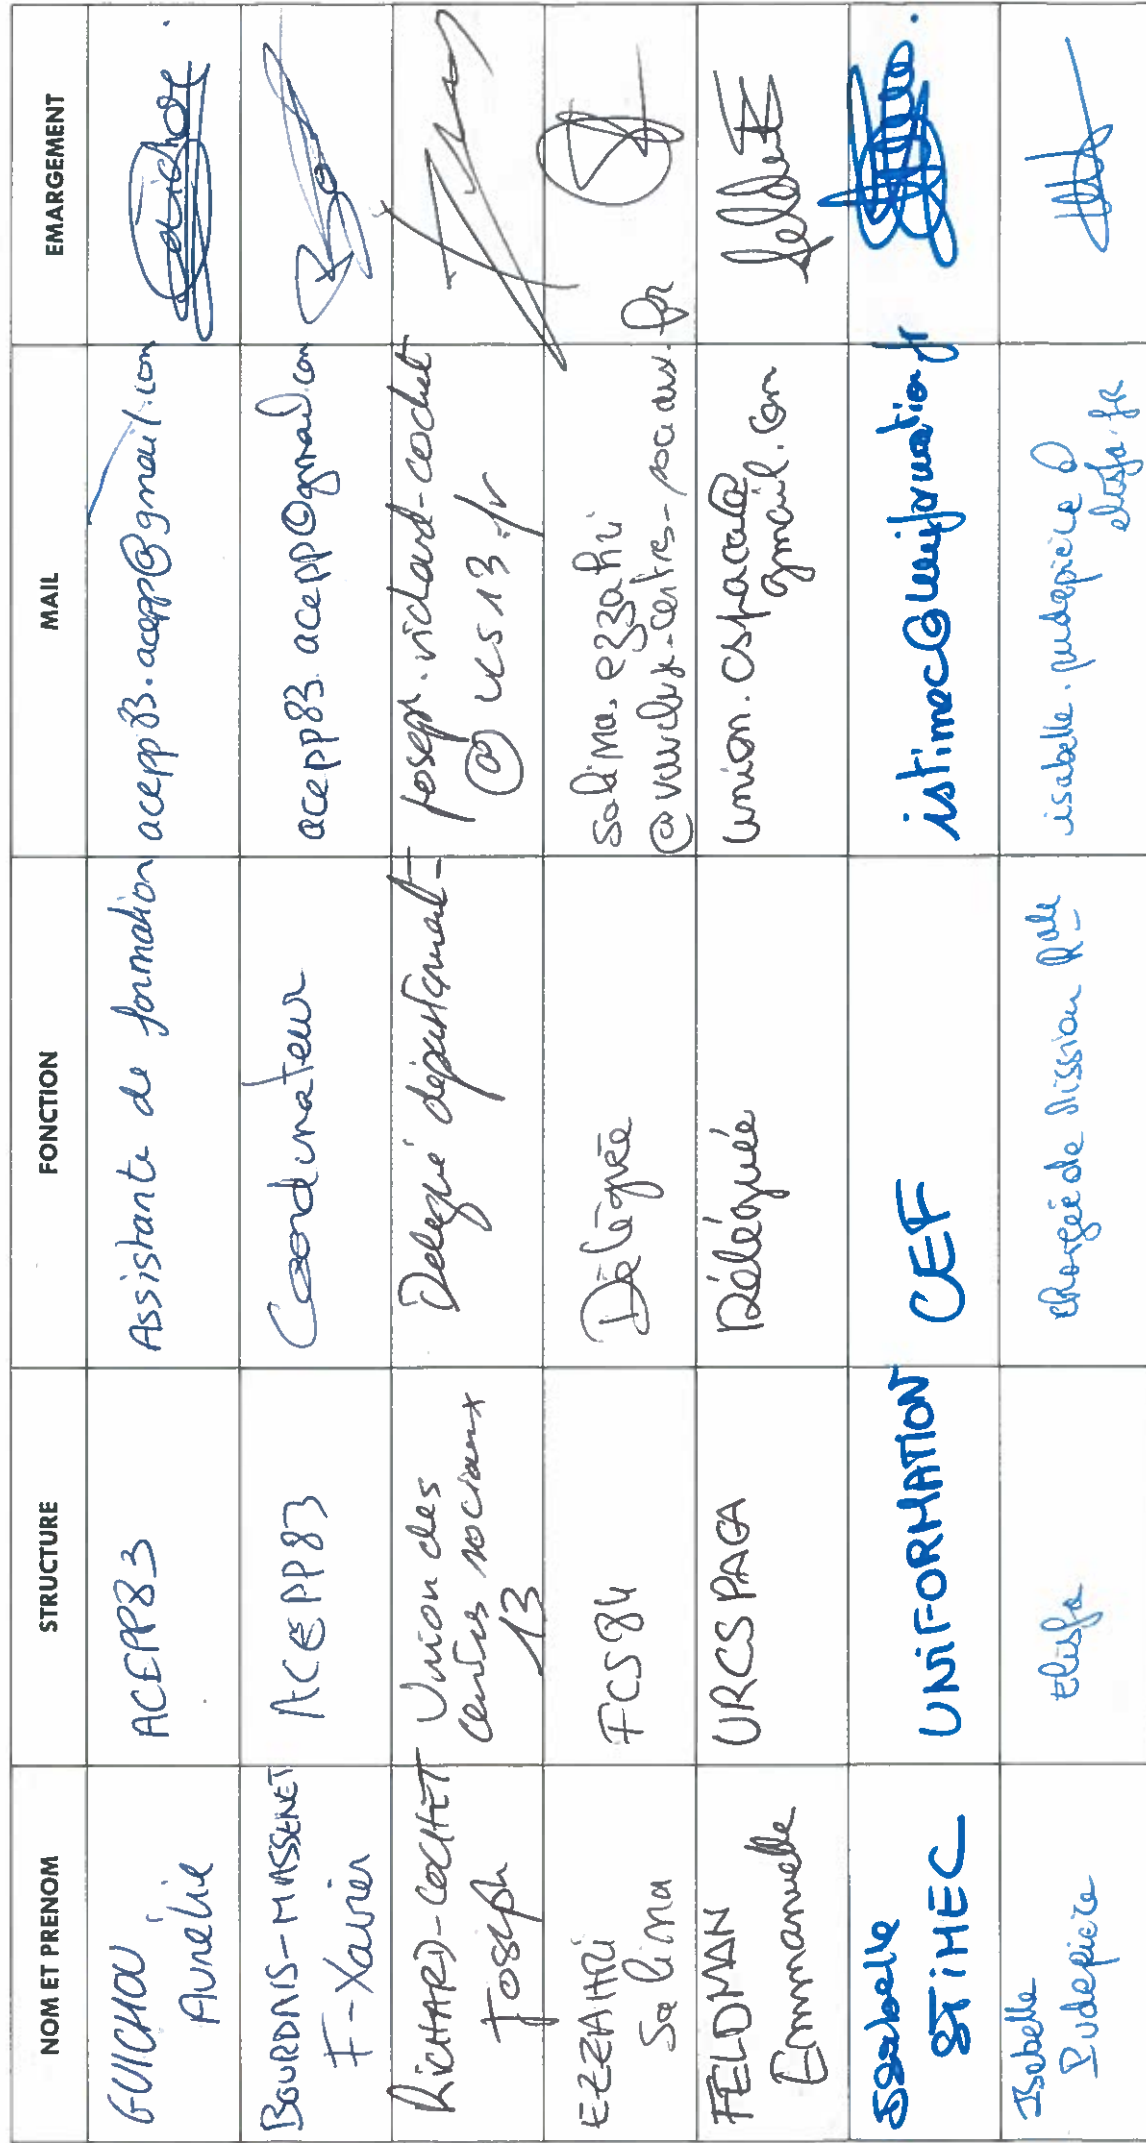 NOM ET PRENOM STRUCTURE FONCTION MAIL EMARGEMENT
GUICHOU
Aurélie
ACEPP83
Assistante de formation
acepp83.acepp@gmail.com
BOURDAIS-MASSENET
F-Xavier
ACEPP83
Coordinateur
acepp83.acepp@gmail.com
RICHARD-COCHET
Joseph
Union des
centres sociaux
13
Délégué départemental
joseph.richard-cochet
@ucs13.fr
EZZAHRI
Salima
FCS84
Déléguée
salima.ezzahri
@vaucluse-centres-sociaux.fr
FELDMAN
Emmanuelle
URCSPACA
Déléguée
union.cspaca@
gmail.com
Isabelle
STIMEC
UNIFORMATION
CEF
istimec@uniformation.fr
Isabelle
Pudepièce
elisfa
chargée de Mission Rale
isabelle.pudepiece@
elisfa.fr